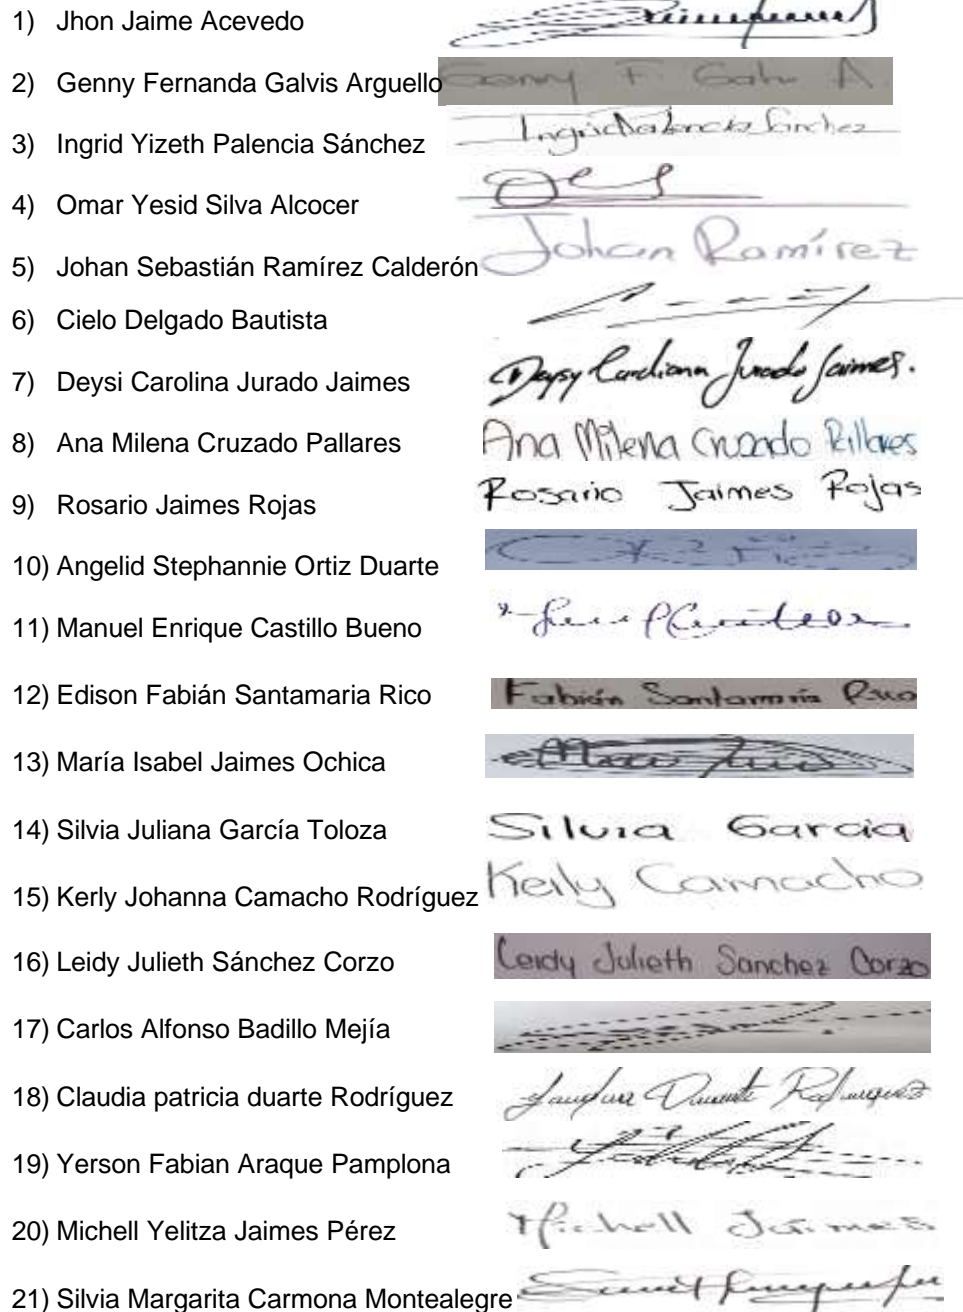 1) Jhon Jaime Acevedo
2) Genny Fernanda Galvis Arguello Genny F. Galvis A.
3) Ingrid Yizeth Palencia Sánchez Ingrid Palencia Sánchez
4) Omar Yesid Silva Alcocer
5) Johan Sebastián Ramírez Calderón Johan Ramírez
6) Cielo Delgado Bautista
7) Deysi Carolina Jurado Jaimes Deysy Carolina Jurado Jaimes.
8) Ana Milena Cruzado Pallares Ana Milena Cruzado Pallares
9) Rosario Jaimes Rojas Rosario Jaimes Rojas
10) Angelid Stephannie Ortiz Duarte
11) Manuel Enrique Castillo Bueno
12) Edison Fabián Santamaria Rico Fabián Santamaría Rico
13) María Isabel Jaimes Ochica
14) Silvia Juliana García Toloza Silvia Garcia
15) Kerly Johanna Camacho Rodríguez Kerly Camacho
16) Leidy Julieth Sánchez Corzo Leidy Julieth Sanchez Corzo
17) Carlos Alfonso Badillo Mejía
18) Claudia patricia duarte Rodríguez Duarte Rodriguez
19) Yerson Fabian Araque Pamplona
20) Michell Yelitza Jaimes Pérez Michell Jaimes
21) Silvia Margarita Carmona Montealegre